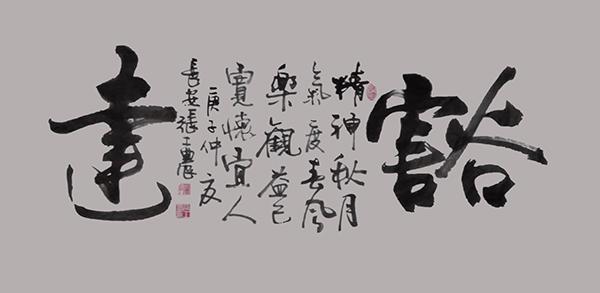 豁達
精神秋月
氣度春風
樂觀益己
寬懷宜人
庚子仲夏
長安張工農